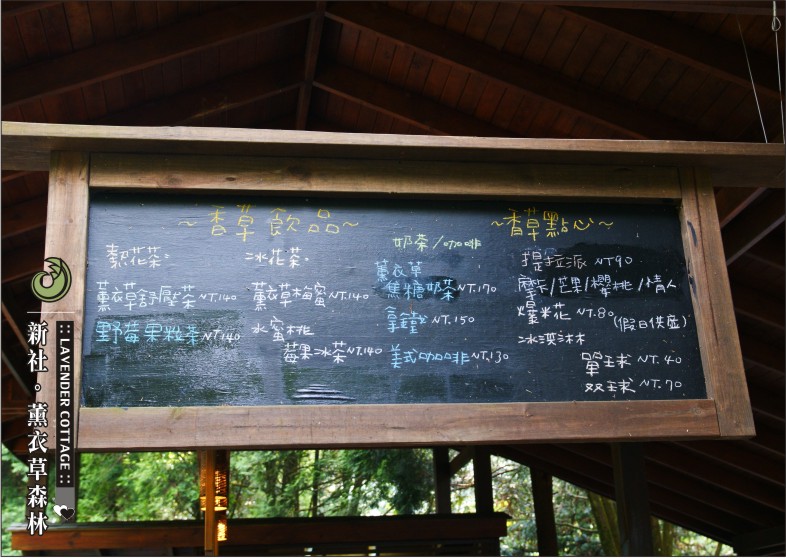 ~香草飲品~
熱花茶:
薰衣草舒壓茶 NT.140
野莓果粒茶 NT.140
冰花茶:
薰衣草梅蜜 NT.140
水蜜桃
莓果冰茶 NT.140
奶茶/咖啡
薰衣草
焦糖奶茶 NT.170
拿鐵 NT.150
美式咖啡 NT.130
~香草點心~
提拉派 NT90
摩卡/芒果/櫻桃/情人
爆米花 NT.80
(假日供應)
冰淇淋
單球 NT.40
双球 NT.70
新社。薰衣草森林
:: LAVENDER COTTAGE ::